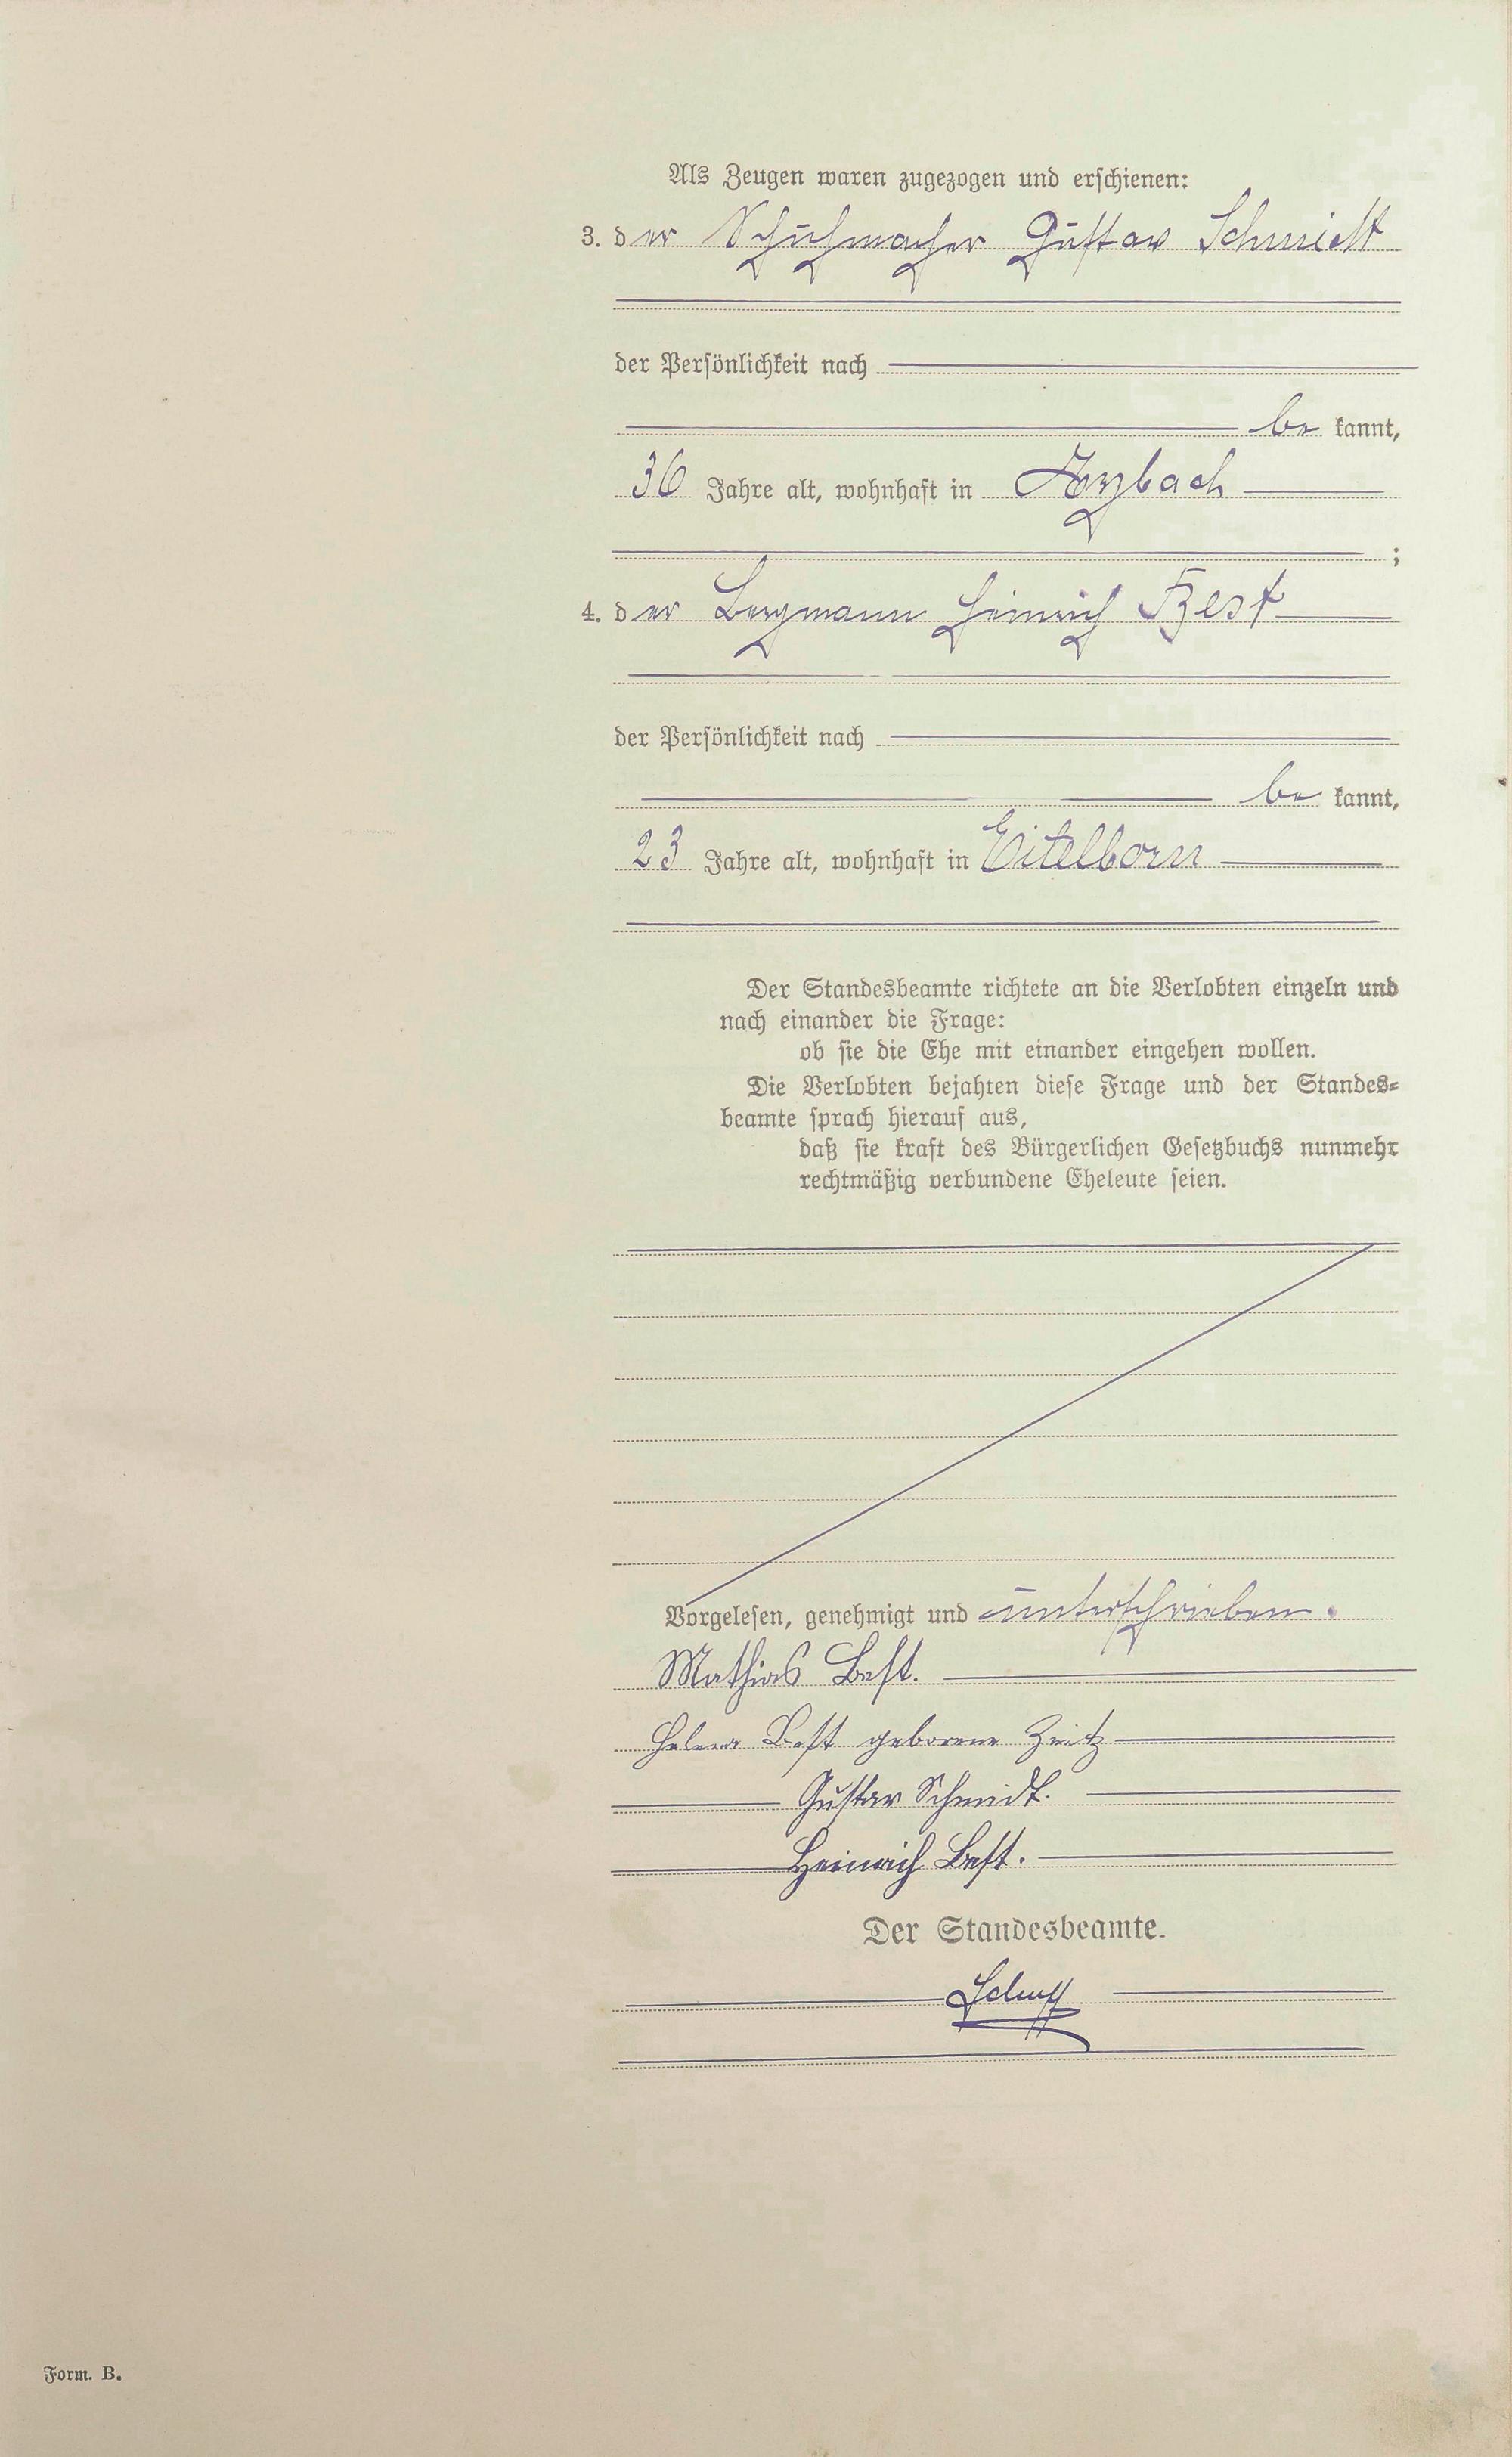 Als Zeugen waren zugezogen und erschienen:
3. der Schuhmacher Gustav Schmidt
der Persönlichkeit nach
be kannt,
36 Jahre alt, wohnhaft in Arzbach
;
4. der Bergmann Heinrich Best
der Persönlichkeit nach
be kannt,
23 Jahre alt, wohnhaft in Eitelborn
Der Standesbeamte richtete an die Verlobten einzeln und
nach einander die Frage:
ob sie die Ehe mit einander eingehen wollen.
Die Verlobten bejahten diese Frage und der Standes-
beamte sprach hierauf aus,
daß sie kraft des Bürgerlichen Gesetzbuchs nunmehr
rechtmäßig verbundene Eheleute seien.
Vorgelesen, genehmigt und unterschrieben.
Mathias Best.
Helena Best geborene
Gustav Schmidt.
Heinrich Best.
Der Standesbeamte.
Form. B.